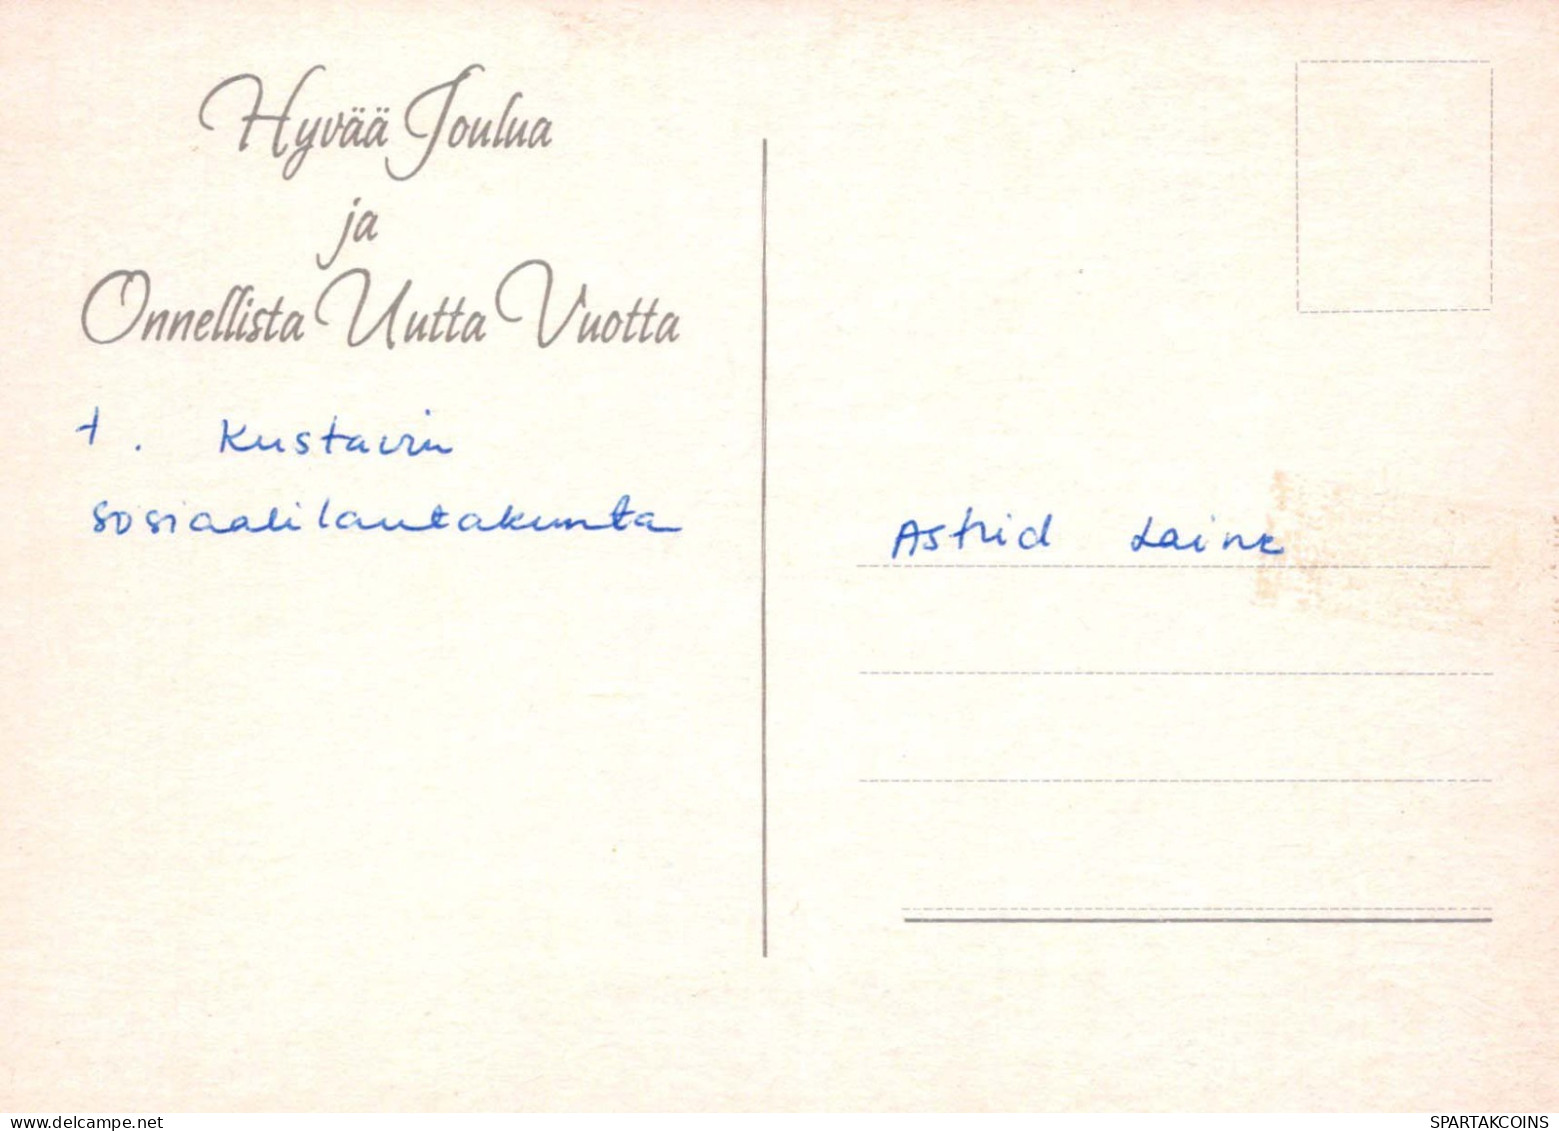 Hyvää Joulua
ja
Onnellista Uutta Vuotta
t. Kustavin
sosiaalilautakunta
Astrid Laine
delcampe.net
SPARTAKCOINS